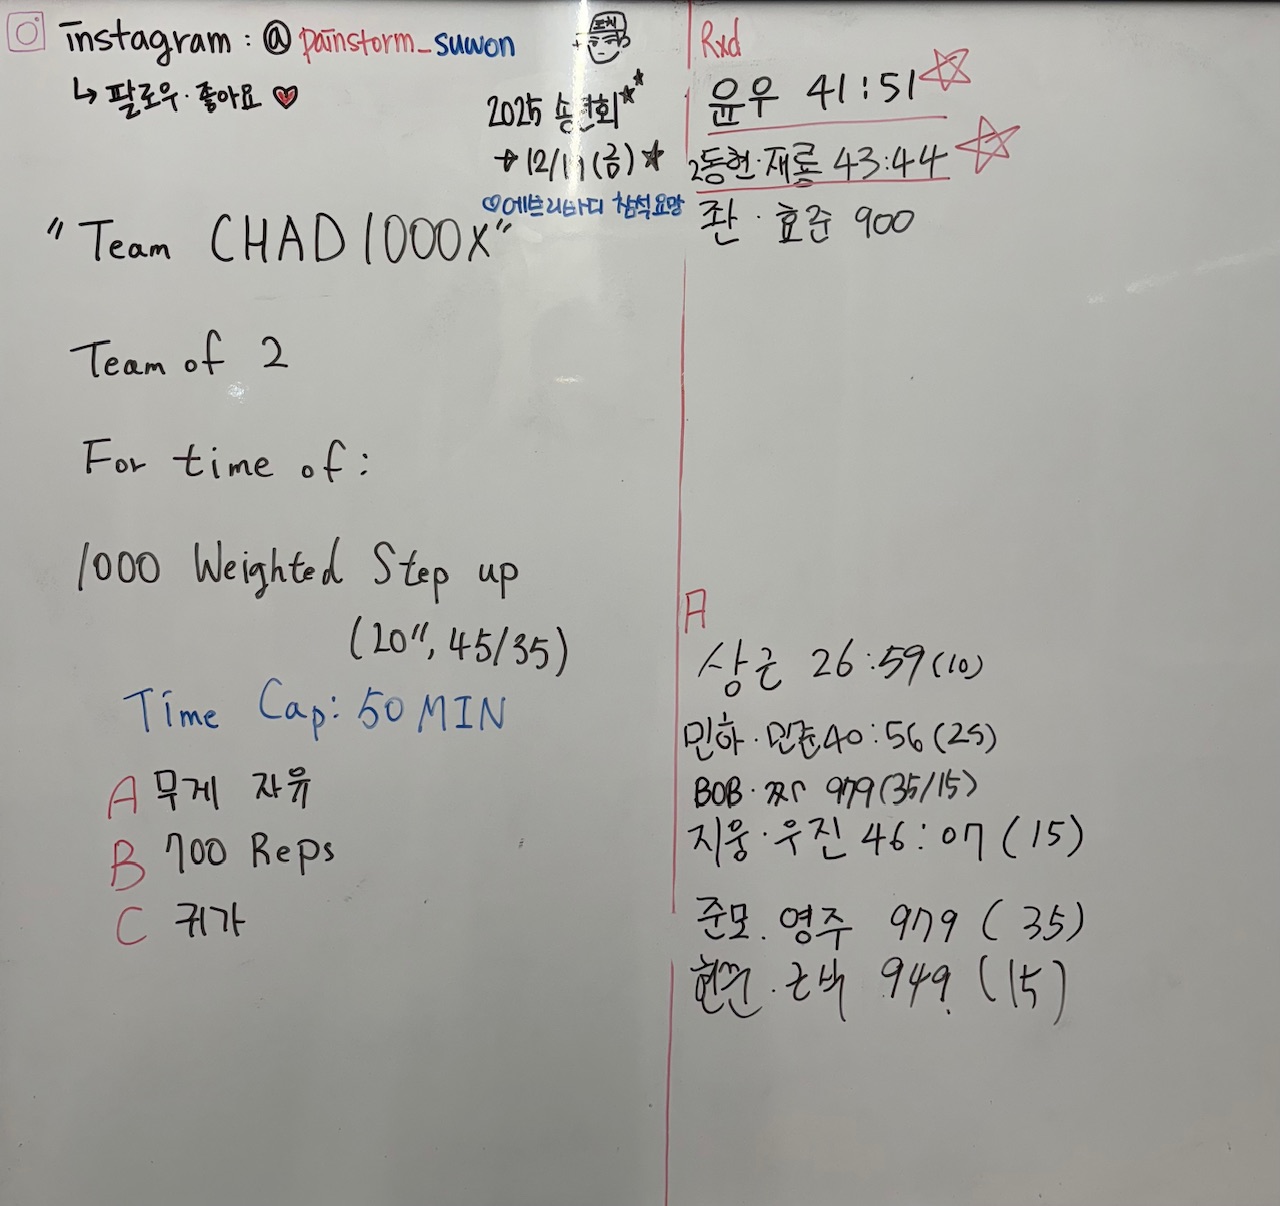 instagram : @ painstorm_suwon
↳ 팔로우·좋아요 ♥
2025 송년회
→ 12/19 (금) ★
♡에브리바디 참석요망
"Team CHAD 1000X"
Team of 2
For time of :
1000 Weighted Step up
(20", 45/35)
Time Cap: 50 MIN
A 무게 자유
B 700 Reps
C 귀가
Rxd
윤우 41:51
2동현·재룡 43:44
좐·효준 900
A
상근 26:59(10)
민하·민준 40:56(25)
BOB· 979(35/15)
지웅·우진 46:07 (15)
준모.영주 979 (35)
949 (15)